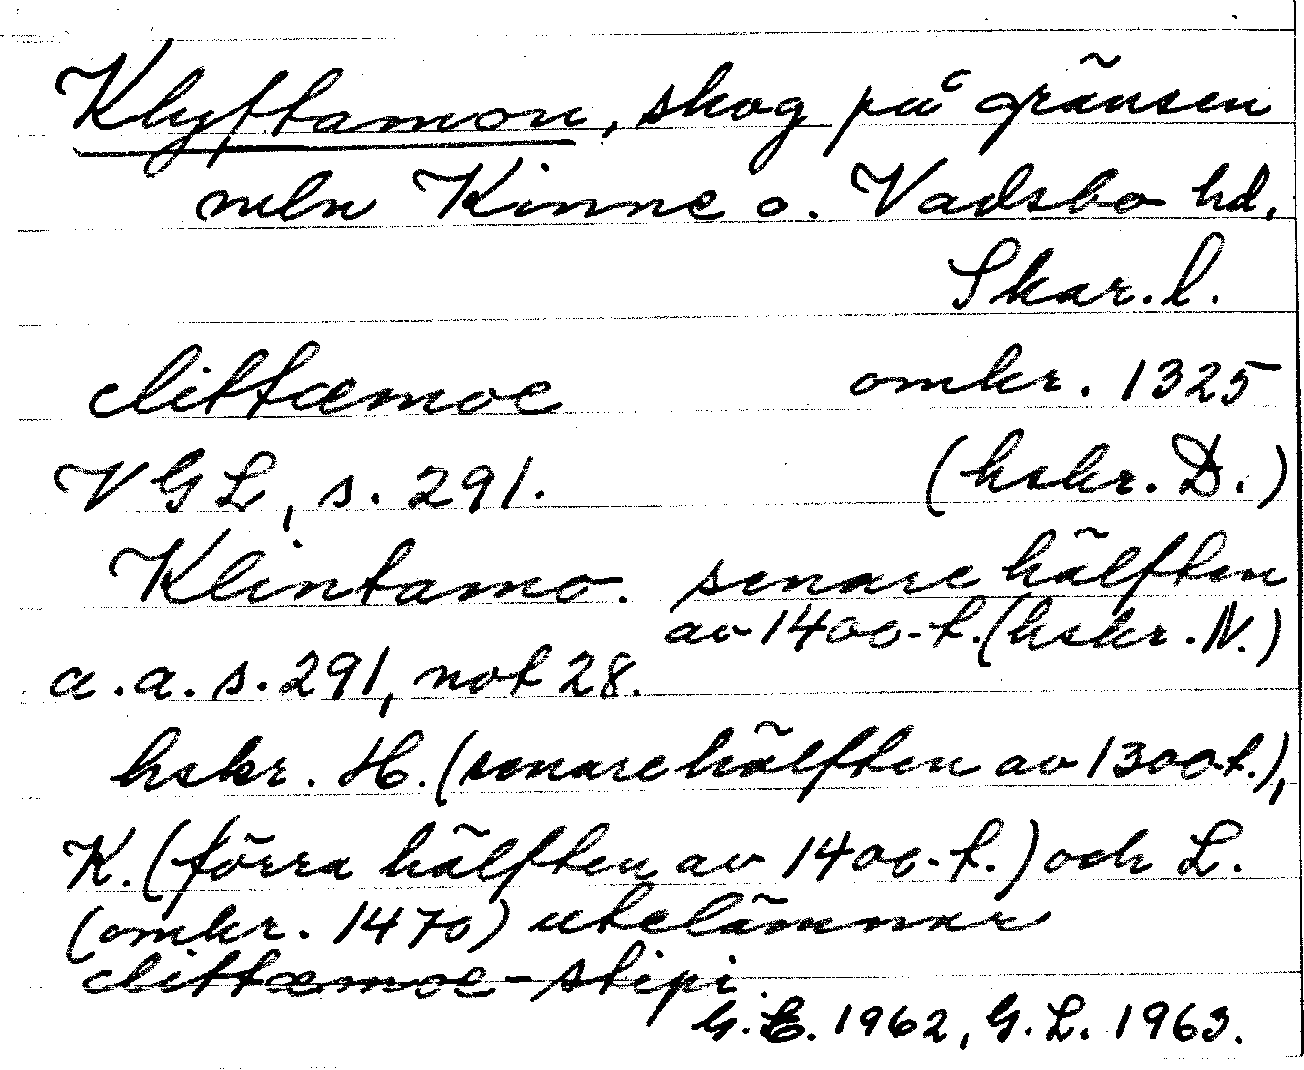 Klyftamon, skog på gränsen
meln Kinne o. Vadsbo hd,
Skar. l.
clittæmoe omkr. 1325
VGL, s. 291. (hskr. D.)
Klintamo. senare hälften
av 1400-t. (hskr. N.)
a.a. s. 291, not 28.
hskr. H. (senare hälften av 1300t.),
K. (förra hälften av 1400-t.) och L.
(omkr. 1470) utelämnar
clittæmoe-stipi.
G.E. 1962, G.L. 1963.